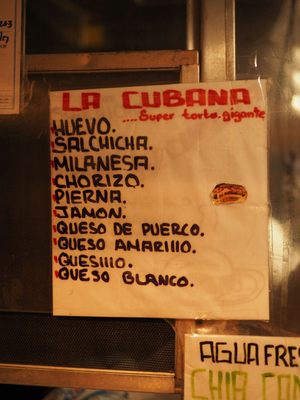 LA CUBANA
....Super torta.gigante
HUEVO.
SALCHICHA.
MILANESA.
CHORIZO.
PIERNA.
JAMON.
QUESO DE PUERCO.
QUESO AMARIllO.
QUESIllO.
QUESO BLANCO.
AGUA FRES
CHIA CON